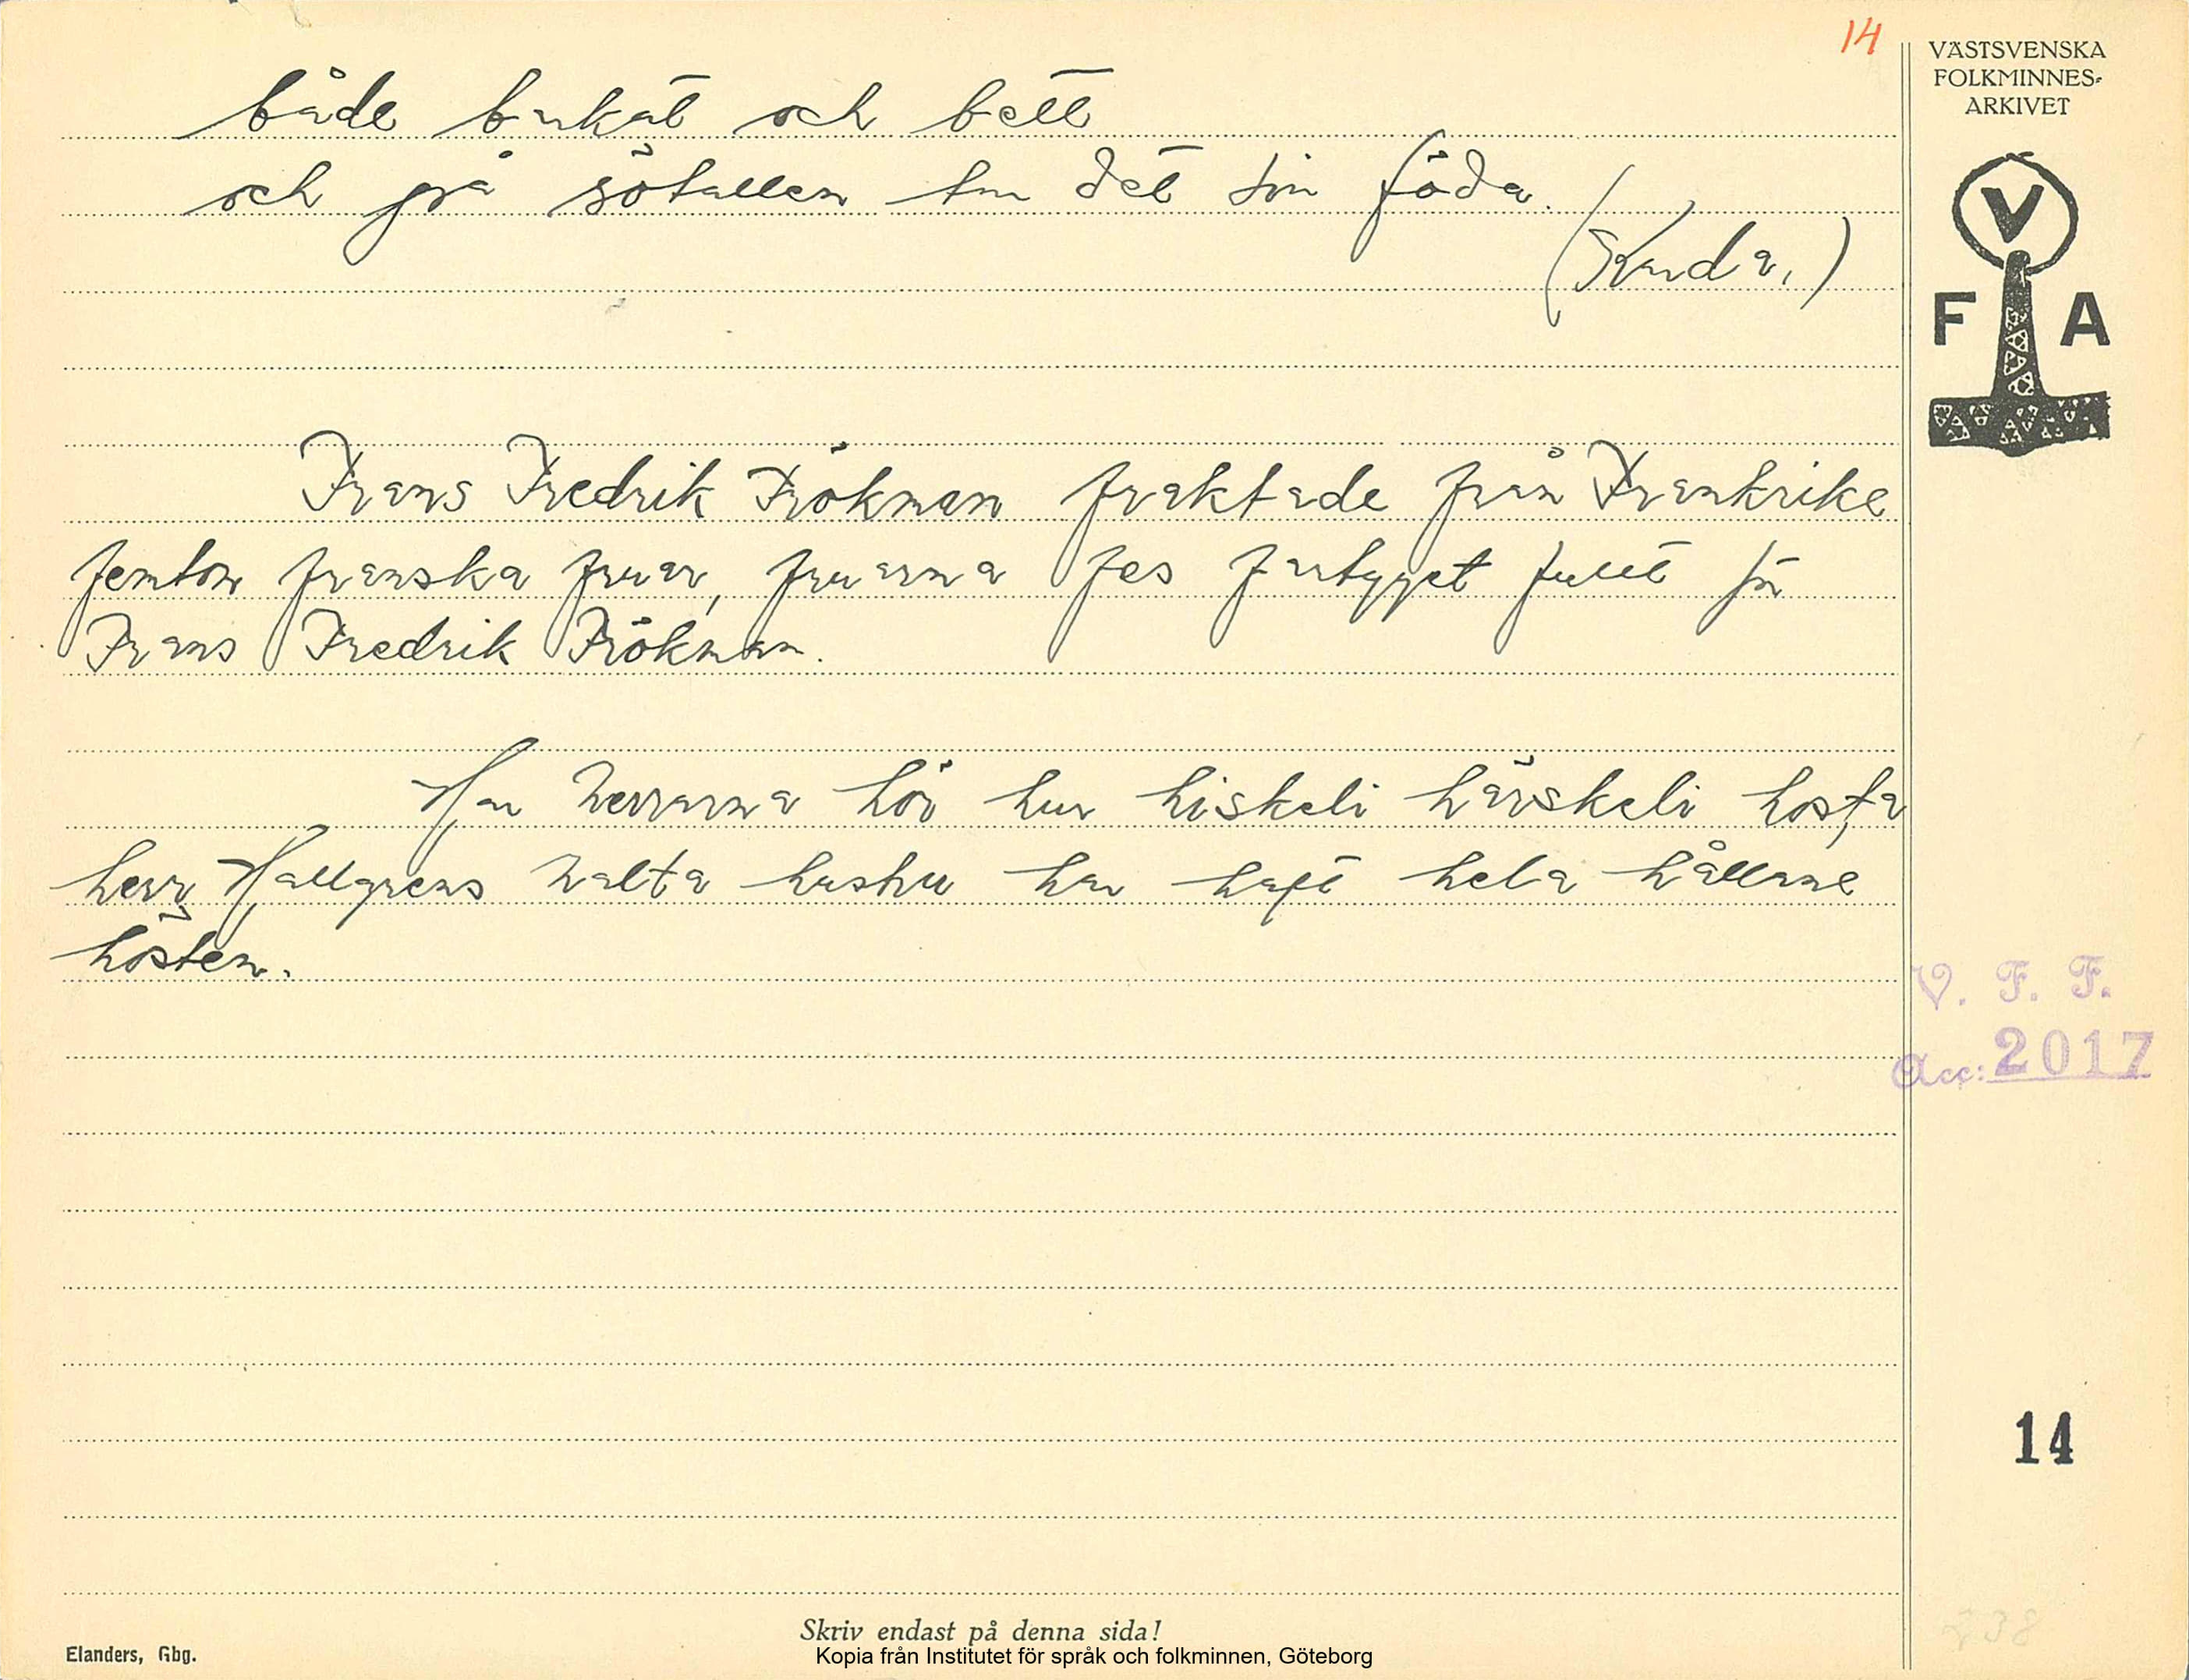 14
VÄSTSVENSKA
FOLKMINNES-
ARKIVET
både bukat och bett
och på sötallen tar det sin föda.
(Skuda.)
V
F A
Frans Fredrik Frökman fraktade från Frankrike
femton franska fruar, fruarna fes fartyget fullt för
Frans Fredrik Frökman.
Har herrarna hör hur hiskeli härskeli hosta
herr Hallgrens halta hushu har haft hela hållane
hösten.
V. F. F.
Acc: 2017
14
Skriv endast på denna sida!
Elanders, Gbg.
Kopia från Institutet för språk och folkminnen, Göteborg